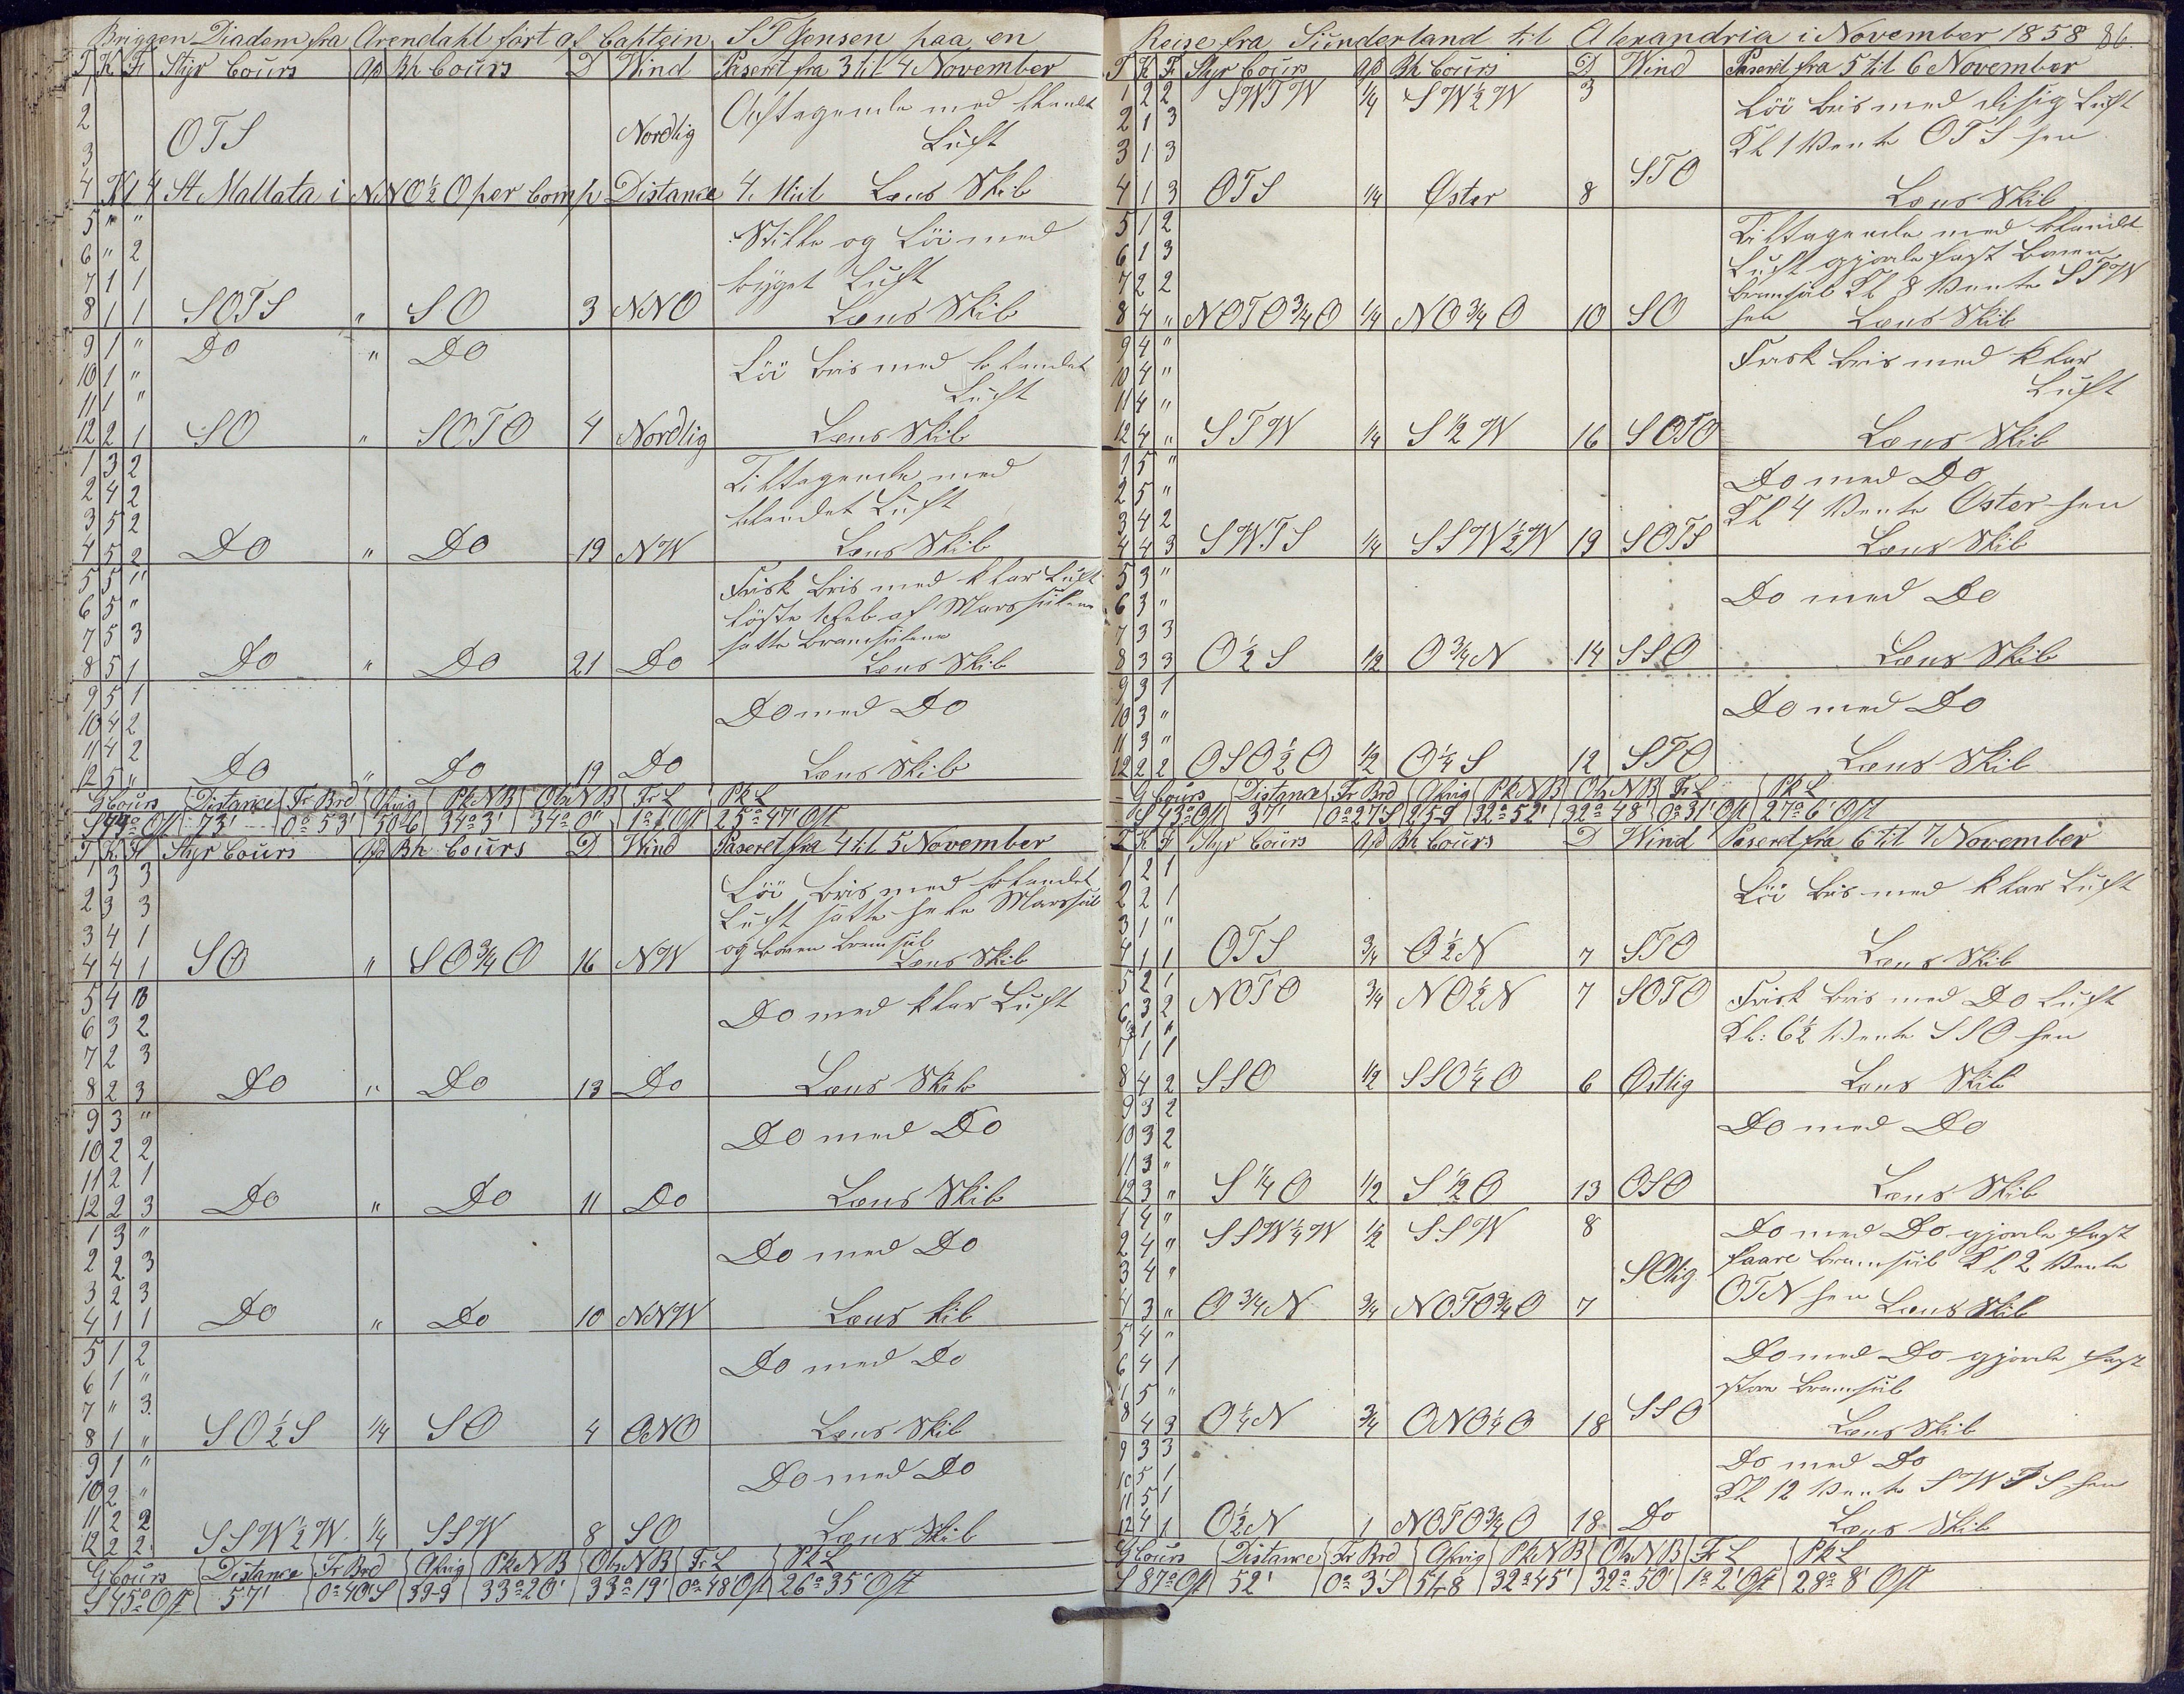 Briggen Diadem fra Arendahl ført af Captein S T Jensen paa en
T K F Styr Cours Afd Bh Cours D Wind Paseret fra 3 til 4 November
1 Aftagende med blandet
2 OTS Nordlig Luft
3
4 Kl 4 St Mattata i NNO½O per Comp Distance 4 Miil Læns Skib
5 " " Stille og Löi med
6 " 2 byget Luft
7 1 1
8 1 1 SOTS " SO 3 NNO Læns Skib
9 1 " Do " Do Löi Bris med blandet
10 1 " Luft
11 1 "
12 2 1 SO " SOTO 4 Nordlig Læns Skib
1 3 2 Tiltagende med
2 4 2 blandet Luft
3 5 2
4 5 2 Do " Do 19 NW Læns Skib
5 5 " Frisk Bris med klar Luft
6 5 " löste 1 Reb af Marsseilene
7 5 3 satte Bramseilene
8 5 1 Do " Do 21 Do Læns Skib
9 5 1 Do med Do
10 4 2
11 4 2
12 5 " Do " Do 19 Do Læns Skib
G Cours Distance Fr Brd Afvig Pk N B Obs N B Fr L Pk L
Ost 73' 0° 53' 50-6 34° 3' 34° 0" 1° 1' Ost 25° 47' Ost
T K F Styr Cours Afd Bh Cours D Wind Paseret fra 4 til 5 November
1 3 3 Löi Bris med blandet
2 3 3 Luft satte hele Marsseil
3 4 1 og Boven Bramseil
4 4 1 SO " SO¾O 16 NW Læns Skib
5 4 Do med klar Luft
6 3 2
7 2 3
8 2 3 Do " Do 13 Do Læns Skib
9 3 " Do med Do
10 2 2
11 2 1
12 2 3 Do " Do 11 Do Læns Skib
1 3 " Do med Do
2 2 3
3 2 3
4 1 1 Do " Do 10 NNW Læns kib
5 1 2 Do med Do
6 1 "
7 " 3
8 1 " SO½S ¼ SO 4 ONO Læns Skib
9 1 " Do med Do
10 2 "
11 2 2
12 2 2 SSW½W ¼ SSW 8 SO Læns Skib
G Cours Distance Fr Brd Afvig Pk N B Obs N B Fr L Pk L
S 45° Ost 57' 0° 40' S 39-9 33° 20' 33° 19' 0° 48' Ost 26° 35' Ost
Reise fra Sünderland til Alexandria i November 1858 86.
T K F Styr Cours Afd Bh Cours D Wind Paseret fra 5 til 6 November
1 2 2 SWTW ¼ SW½W 3 Löi Bris med disig Luft
2 1 3 Kl 1 Vente OTS hen
3 1 3
4 1 3 OTS ¼ Øster 8 STO Læns Skib
5 1 2 Tiltagende med blandet
6 1 3 Luft gjorde fast Boven
7 2 2 Bramseil Kl 8 Vente STW
8 4 " NOTO¾O ¼ NO¾O 10 SO hen Læns Skib
9 4 " Frisk Bris med klar
10 4 " Luft
11 4 "
12 4 " STW ¼ S½W 16 SOTO Læns Skib
1 5 " Do med Do
2 5 " Kl 4 Vente Oster hen
3 4 2
4 4 3 SWTS ¼ SSW½W 19 SOTS Læns Skib
5 3 " Do med Do
6 3 "
7 3 3
8 3 3 O½S ½ O¾N 14 SSO Læns Skib
9 3 1 Do med Do
10 3 "
11 3 "
12 2 2 OSO½O ½ O¼S 12 STO Læns Skib
G Cours Distance Fr Brd Afvig Pk N B Obs N B Fr L Pk L
S 43° Ost 37' 0° 27' S 25-9 32° 52' 32° 48' 0° 31' Ost 27° 6' Ost
T K F Styr Cours Afd Bh Cours D Wind Paseret fra 6 til 7 November
1 2 1 Löi Bris med klar Luft
2 2 1
3 1 "
4 1 1 OTS ¾ O½N 7 STO Læns Skib
5 2 1 NOTO ¾ NO½N 7 SOTO Frisk Bris med Do Luft
6 3 2 Kl: 6½ Vente SSO hen
7 1 1
8 4 2 SSO ½ SSO¼O 6 Østlig Læns Skib
9 3 2 Do med Do
10 3 2
11 3 "
12 3 " S¼O ½ S½O 13 OSO Læns Skib
1 4 " SSW¼W ½ SSW 8 Do med Do gjorde fast
2 4 " faare Bramseil Kl 2 Vente
3 4 " SOlig OTN hen
4 3 " O¾N ¾ NOTO¾O 7 Læns Skib
5 4 " Do med Do gjorde fast
6 4 1 store Bramseil
7 5 "
8 4 3 O¼N ¾ ONO¼O 18 SSO Læns Skib
9 3 3 Do med Do
10 5 1 Kl 12 Vente SWTS hen
11 5 1
12 4 1 O½N 1 NOTO¾O 18 Do Læns Skib
G Cours Distance Fr Brd Afvig Pk N B Obs N B Fr L Pk L
S 87° Ost 52' 0° 3' S 51-8 32° 45' 32° 50' 1° 2' Ost 28° 8' Ost